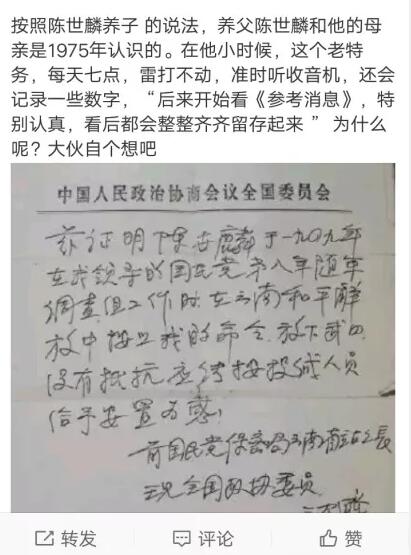 按照陈世麟养子 的说法，养父陈世麟和他的母
亲是1975年认识的。在他小时候，这个老特
务，每天七点，雷打不动，准时听收音机，还会
记录一些数字，“后来开始看《参考消息》，特
别认真，看后都会整整齐齐留存起来 ” 为什么
呢？大伙自个想吧
中国人民政治协商会议全国委员会
兹证明陈世麟于一九四九年
在我领导的国民党第八军随军
调查组工作时，在云南和平解
放中接受我的命令，放下武器，
没有抵抗，应作投诚人员
给予安置为憑
前国民党保密局云南站站长
现全国政协委员
转发
评论
赞